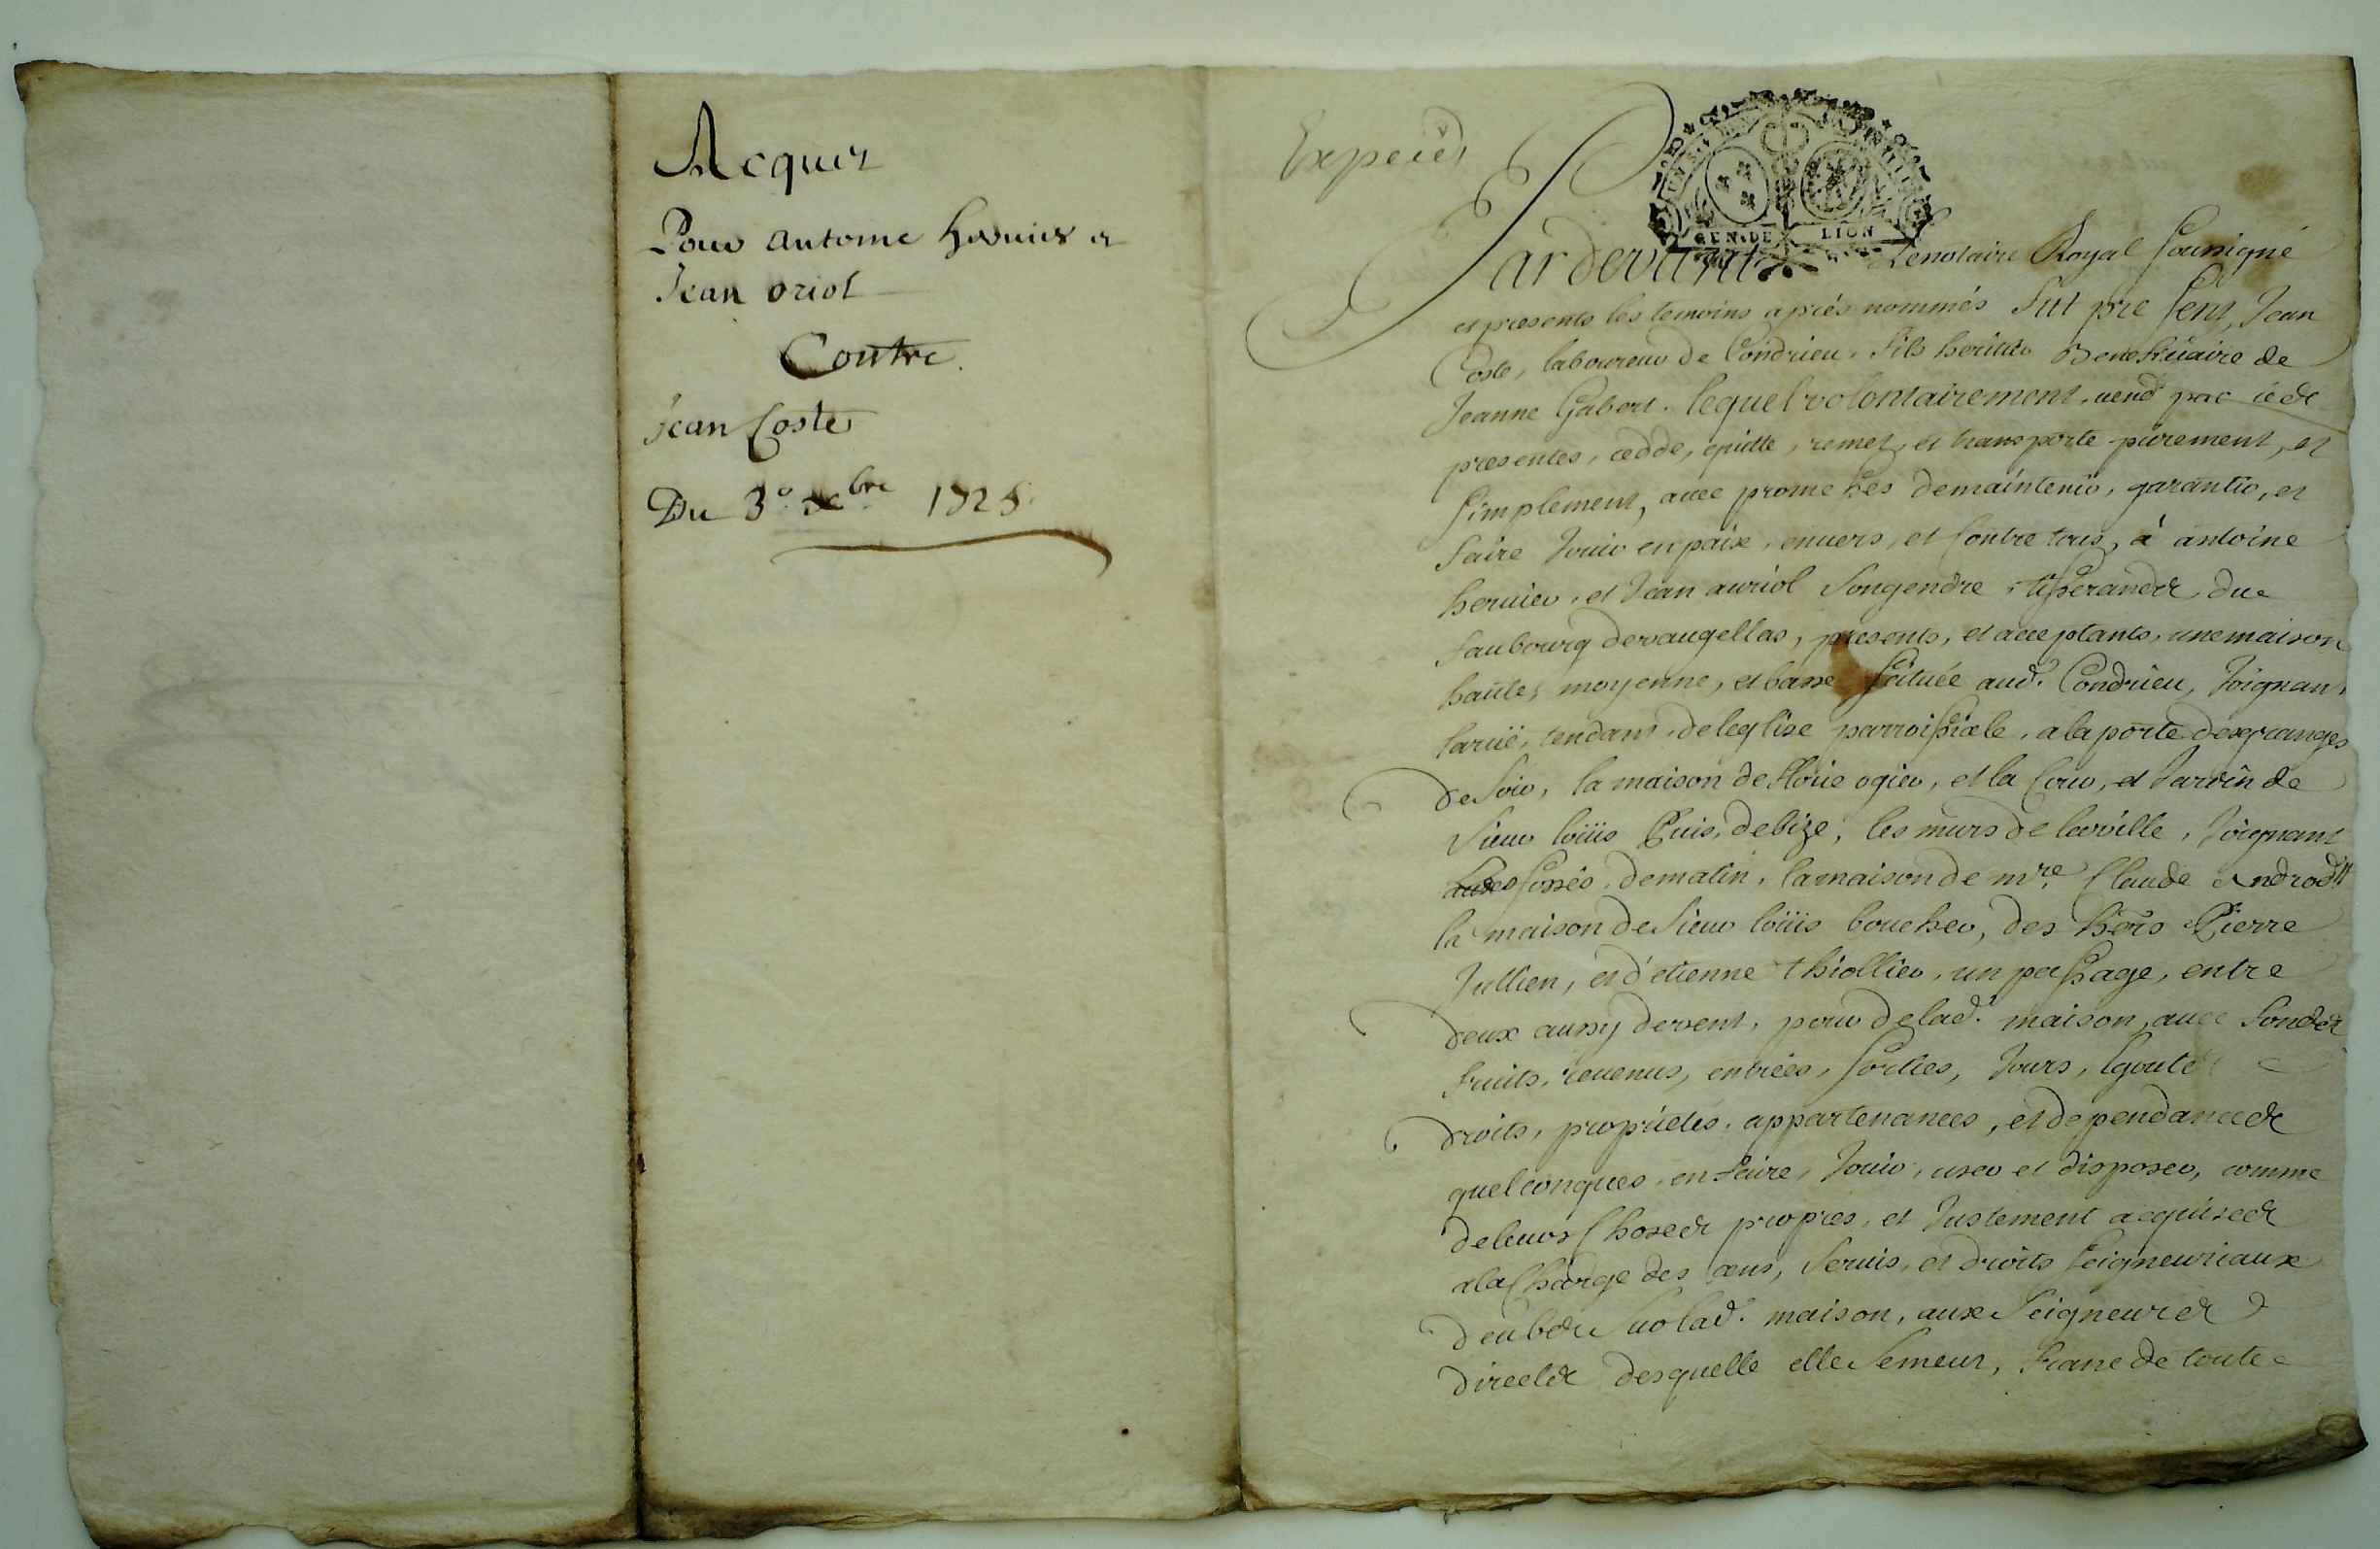 Acquis
Pour antoine hervier et
Jean oriol
Contre
Jean Coste
Du 3e xbre 1725
GEN. DE LION
Pardevant Lenotaire Royal soussigné
et presents les temoins aprés nommés fut present, Jean
Coste, laboureur de Condrieu, fils heritier Beneficiaire de
Jeanne Gabert. lequel volontairement, vend par céde
presentes, cedde, quitte, remet, et transporte purement, et
simplement, avec promesses demaintenir, garantir, et
faire Jouir en paix, envers, et Contre tous, à antoine
hervier, et Jean auriol songendre, tisserands du
faubourg devaugellas, presents, et acceptants, une maison
haute, moyenne, et basse scituée aud. Condrieu, Joignant
larüe, tendant deleglise parroissiale, a la porte desgranges
de soir, la maison de ogier, et la Cour, et Jardin de
sieur loüis Puis, debize, les murs de laville, Joignant
fossés, dematin, lamaison de mre. Claude
la maison de sieur loüis boucher, des hers Pierre
Jullien, et d'etienne thiollier, un passage, entre
deux aussy devent, pour delad. maison, avec fonds
fruits, revenus, entrées, sorties, Jours, Egouts
droits, proprietés, appartenances, et dependances
quelconques, en faire, Jouir, user et disposer, comme
deleurs Choses propres, et Justement acquises
ala Charge des cens, servis, et droits seigneuriaux
deubs sur lad. maison, aux seigneurs
directs desquelle elle semeut, franc de toute